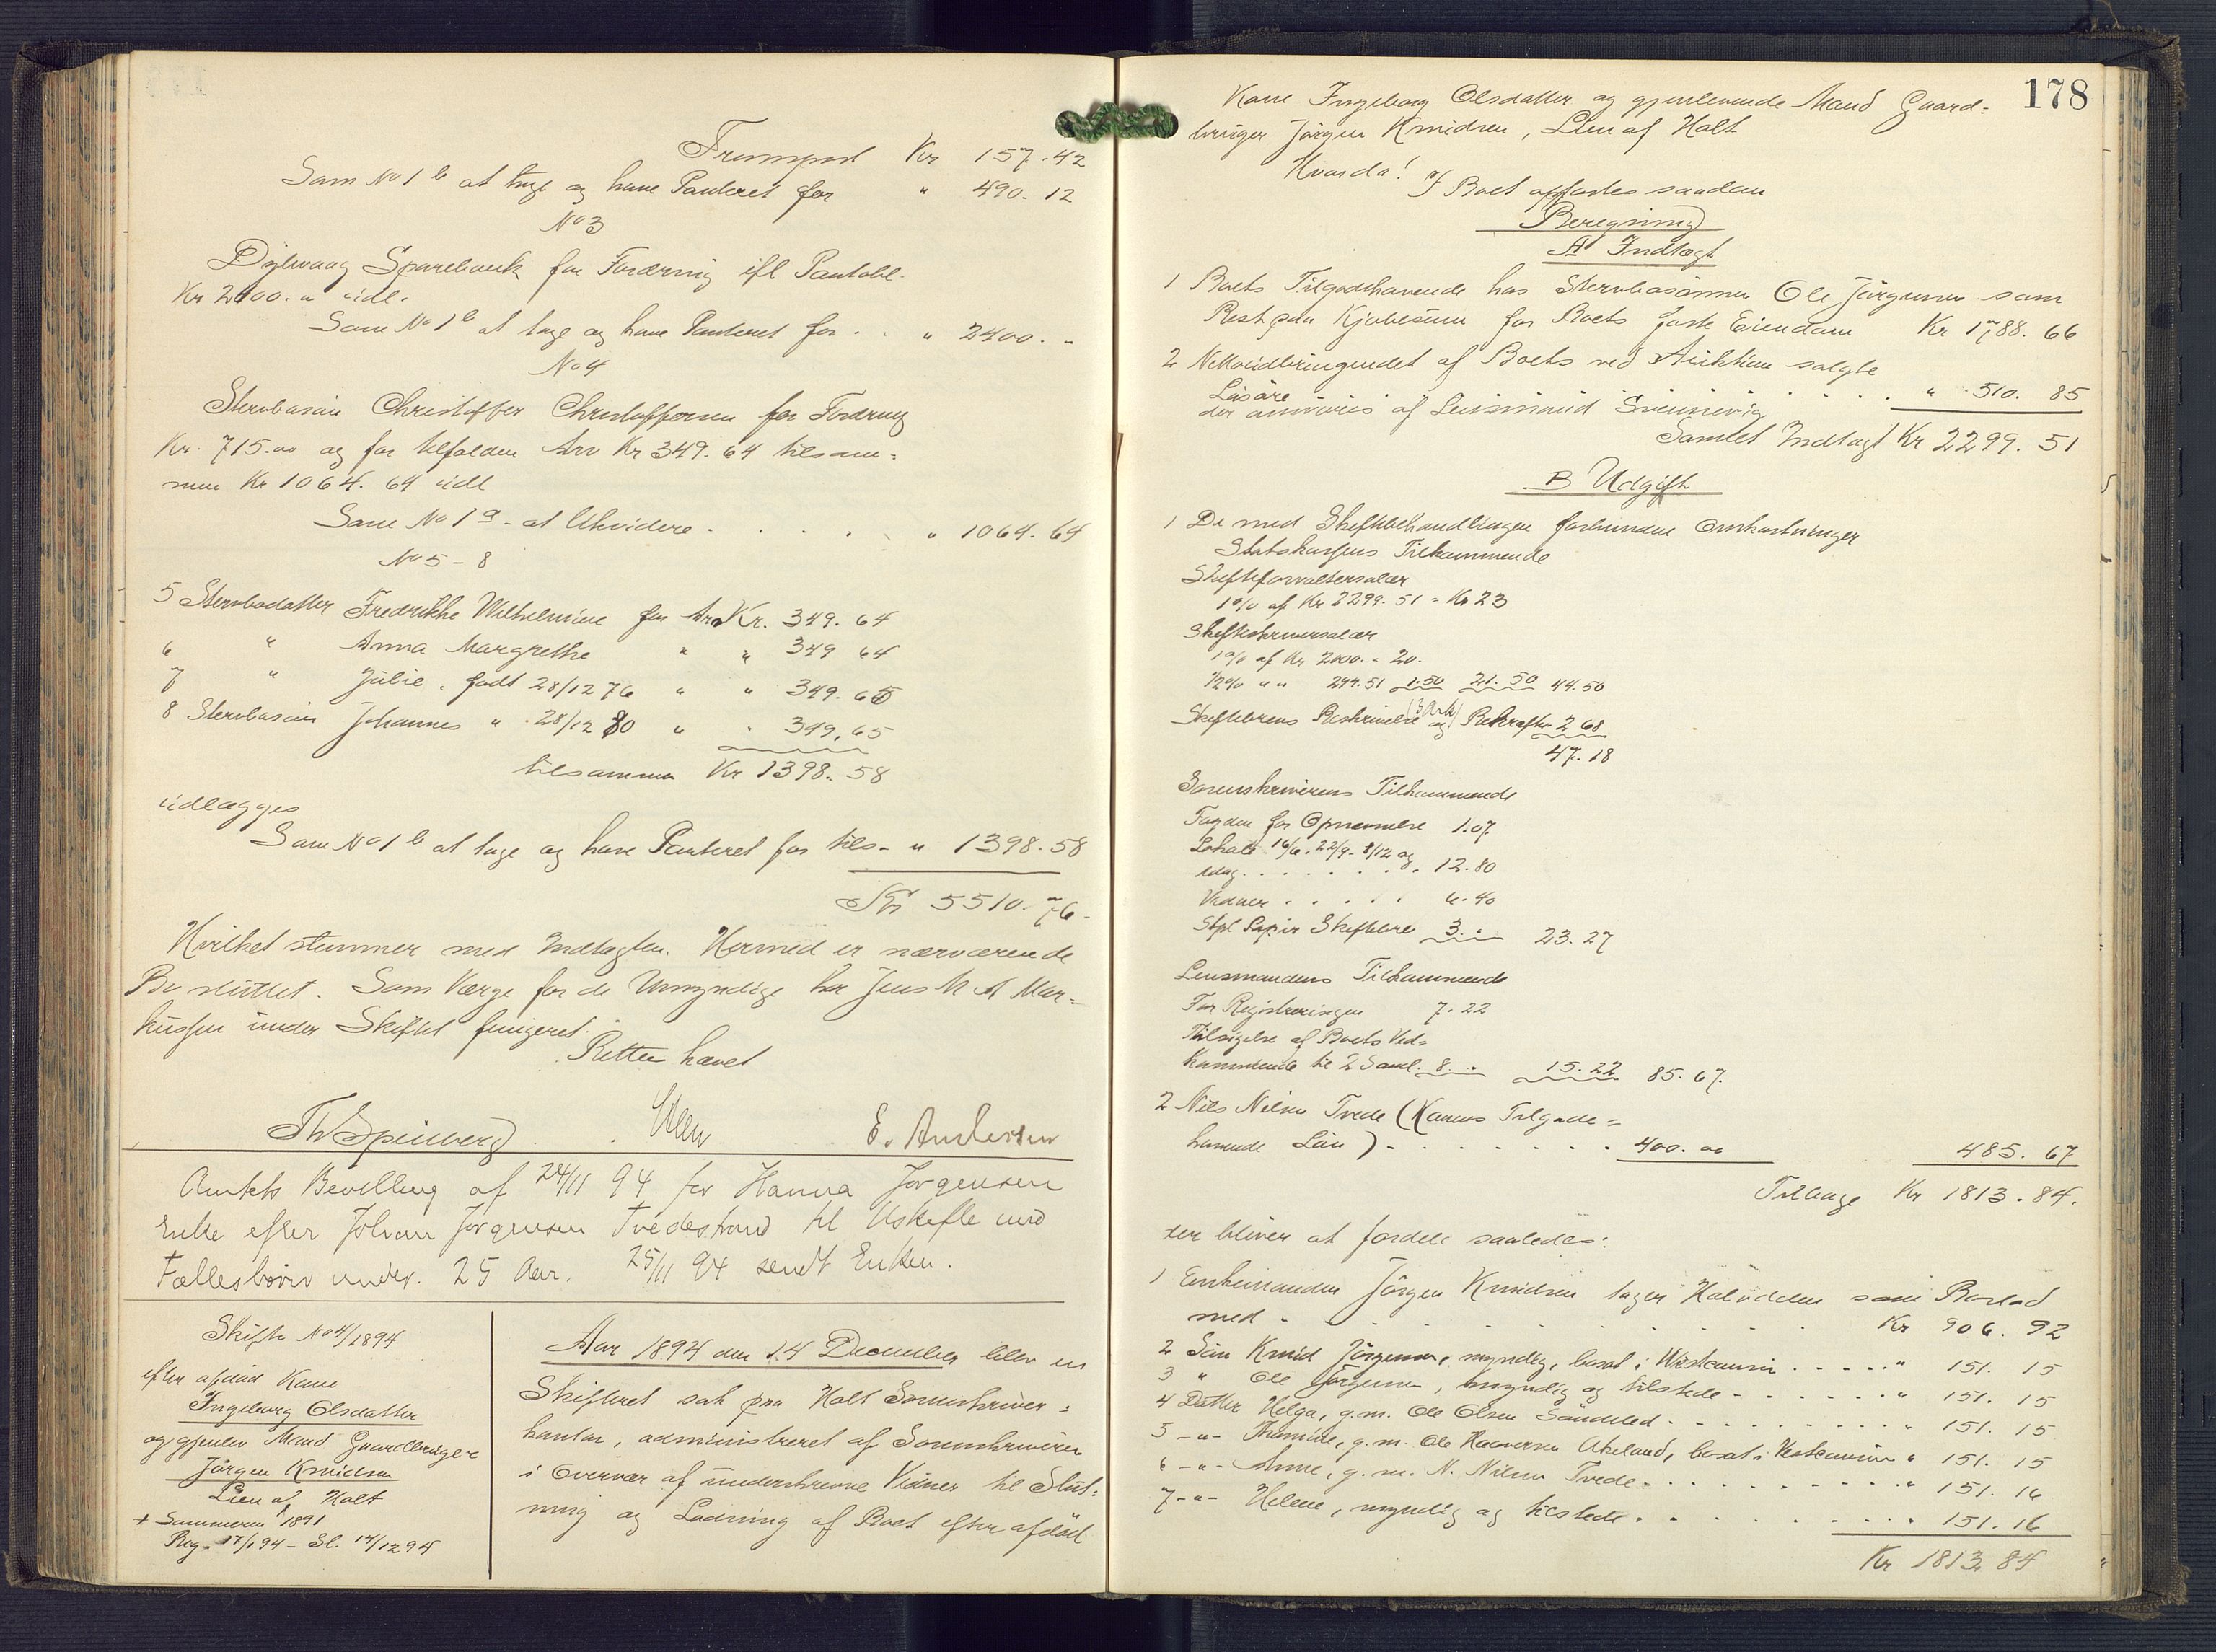 Transport Kr 157.42
Som No 1 b at tage og have Panteret for " 490.12
No 3
Dybvaag Sparebank for Fordring ifl Pantobl.
Kr 2400. " udl.
Som No 1 b at tage og have Panteret for . . " 2400. -
No 4
Stervbosøn Christoffer Christoffersen for Fordring
Kr. 715.00 og for tilfalden Arv Kr 349.64 tilsam=
men Kr 1064.64 udl
Som No 1 a - at likvidere . . . . . " 1064.64
No 5 - 8
5 Stervbodatter Fredrikke Wilhelmine for Arv Kr. 349.64
6 " Anna Margrethe " " 349 64
7 " Julie, født 28/12 76 " " 349.65
8 Stervbosøn Johannes " 28/12 80 " " 349.65
tilsammen Kr 1398.58
udlægges
Som No 1 b at tage og have Panteret for tils- " 1398.58
Kr 5510.76-
Hvilket stemmer med Indtægten. Hermed er nærværende
Bo sluttet. Som Værge for de Umyndige har Jens M A Mar=
kussen under Skiftet fungeret.
Retten hævet
Th Speilberg E. Andersen
Amtets Bevilling af 24/11 94 for Hanna Jørgensen
Enke efter Johan Jørgensen Tvedestrand til Uskifte med
Fællesbørn under 25 Aar. 25/11 94 sendt Enken.
Skifte No 4/1894
efter afdød Kone
Ingeborg Olsdatter
og gjenlev Mand Gaardbruger
Jørgen Knudsen
Lien af Holt
+ Sommeren 1891
Reg. 17/1 94 - Sl. 14/12 94
Aar 1894 den 14 December blev en
Skifteret sat paa Holt Sorenskriver=
kontor, administreret af Sorenskriveren
i Overvær af underskrevne Vidner til Slut=
ning og Lodning af Boet efter afdød
178
Kone Ingeborg Olsdatter og gjenlevende Mand Gaard=
bruger Jørgen Knudsen, Lien af Holt
Hvorda!
I Boet opfortes saadan
Beregning
A Indtægt
1 Boets Tilgodehavende hos Stervbosønnen Ole Jørgensen som
Rest paa Kjøbesum for Boets faste Eiendom Kr 1788.66
2 Nettoudbringendet af Boets ved Auktion solgte
Løsøre . . . . " 510.85
der anvises af Lensmand Svennevig
Samlet Indtægt Kr 2299.51
B Udgift
1 De med Skiftebehandlingen forbundne Omkostninger
Statskassens Tilkommende
Skifteforvaltersalær
1% af Kr 2299.51 = Kr 23
Skifteskriversalær
1% af Kr 2000. = 20.
1/2% " " 299.51 1.50 21.50 44.50
Skiftebrevs Beskrivelse (3 Ark) og Bekræft. 2 68
47.18
Sorenskriverens Tilkommende
Fogden for Opnævnelse 1.07
Lokale 16/6. 22/9 - 8/12 og
idag . . . . . . . 12.80
Vidner . . . . . 6.40
Stpl Papir Skiftebre 3. " 23.27
Lensmandens Tilkommende
For Registreringen 7.22
Tilsigelse af Boets Ved=
kommende til 2 Saml. 8. " 15.22 85.67.
2 Nils Nilsen Tvede (Konens Tilgode=
havende Løn) - . . . . . . 400.00 485.67
Tilbage Kr 1813.84.
der bliver at fordele saaledes:
1 Enkemanden Jørgen Knudsen tager Halvdelen som Boslod
med . . . . . . . . . . Kr 906.92
2 Søn Knud Jørgensen, myndig, bosat i Westamerica . . . . . " 151.15
3 " Ole Jørgensen, myndig og tilstede - . . . . . . " 151.15
4 Datter Helga, g.m. Ole Olsen Søndeled . . . . . . . . . " 151.15
5 - " - Thomine, g.m. Ole Haaversen Aeland, bosat i Vestamerica " 151.15
6 - " - Anne, g.m. N. Nilsen Tvede . . . . . . . . . " 151.16
7 - " - Helene, myndig og tilstede . . . . . . . . " 151.16
Kr 1813.84